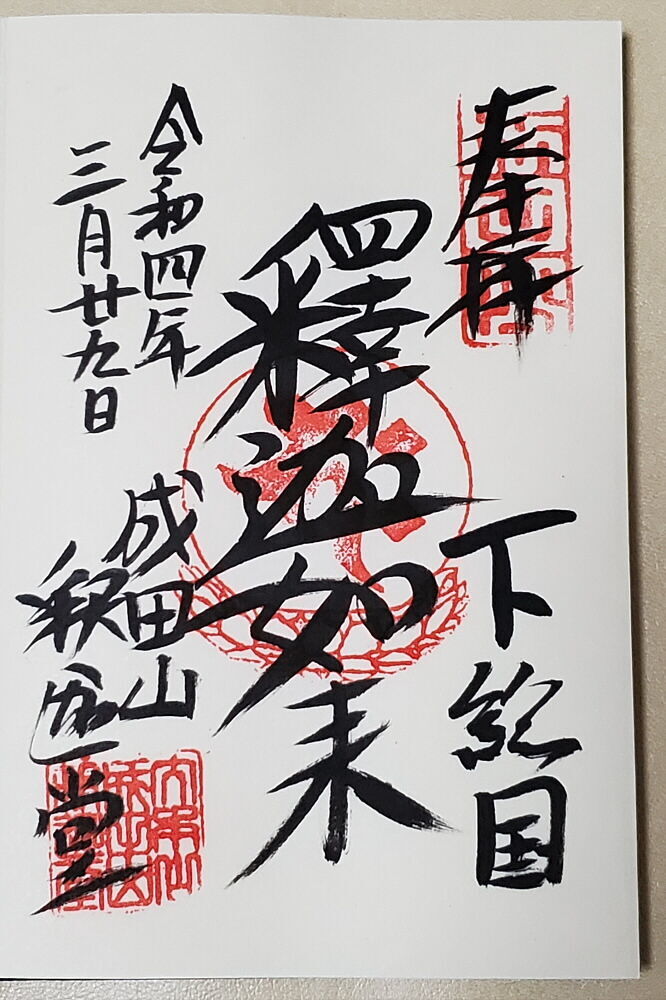 奉拝
下総国
釋迦如来
令和四年
三月廿九日
成田山
釈迦堂